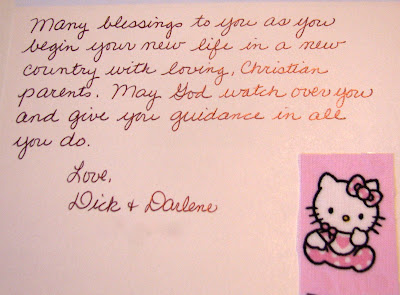 Many blessings to you as you
begin your new life in a new
country with loving, Christian
parents. May God watch over you
and give you guidance in all
you do.
Love,
Dick & Darlene